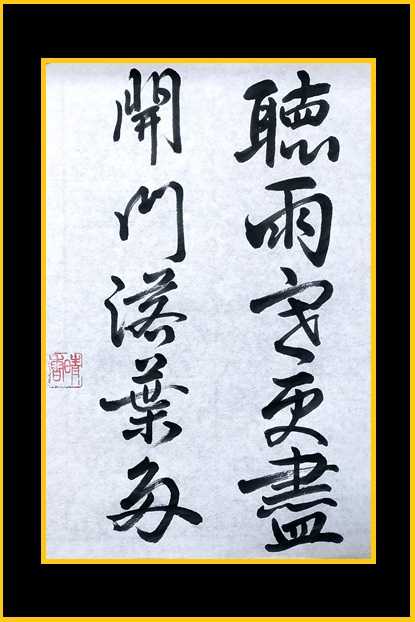 聴雨寒更盡
開門落葉多